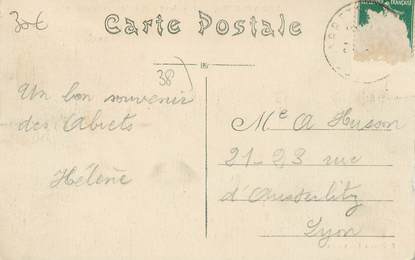 30€
Carte Postale
38
Un bon souvenir
des Abrets
Hélène
Me A Husson
21-23 rue
d'Austerlitz
Lyon